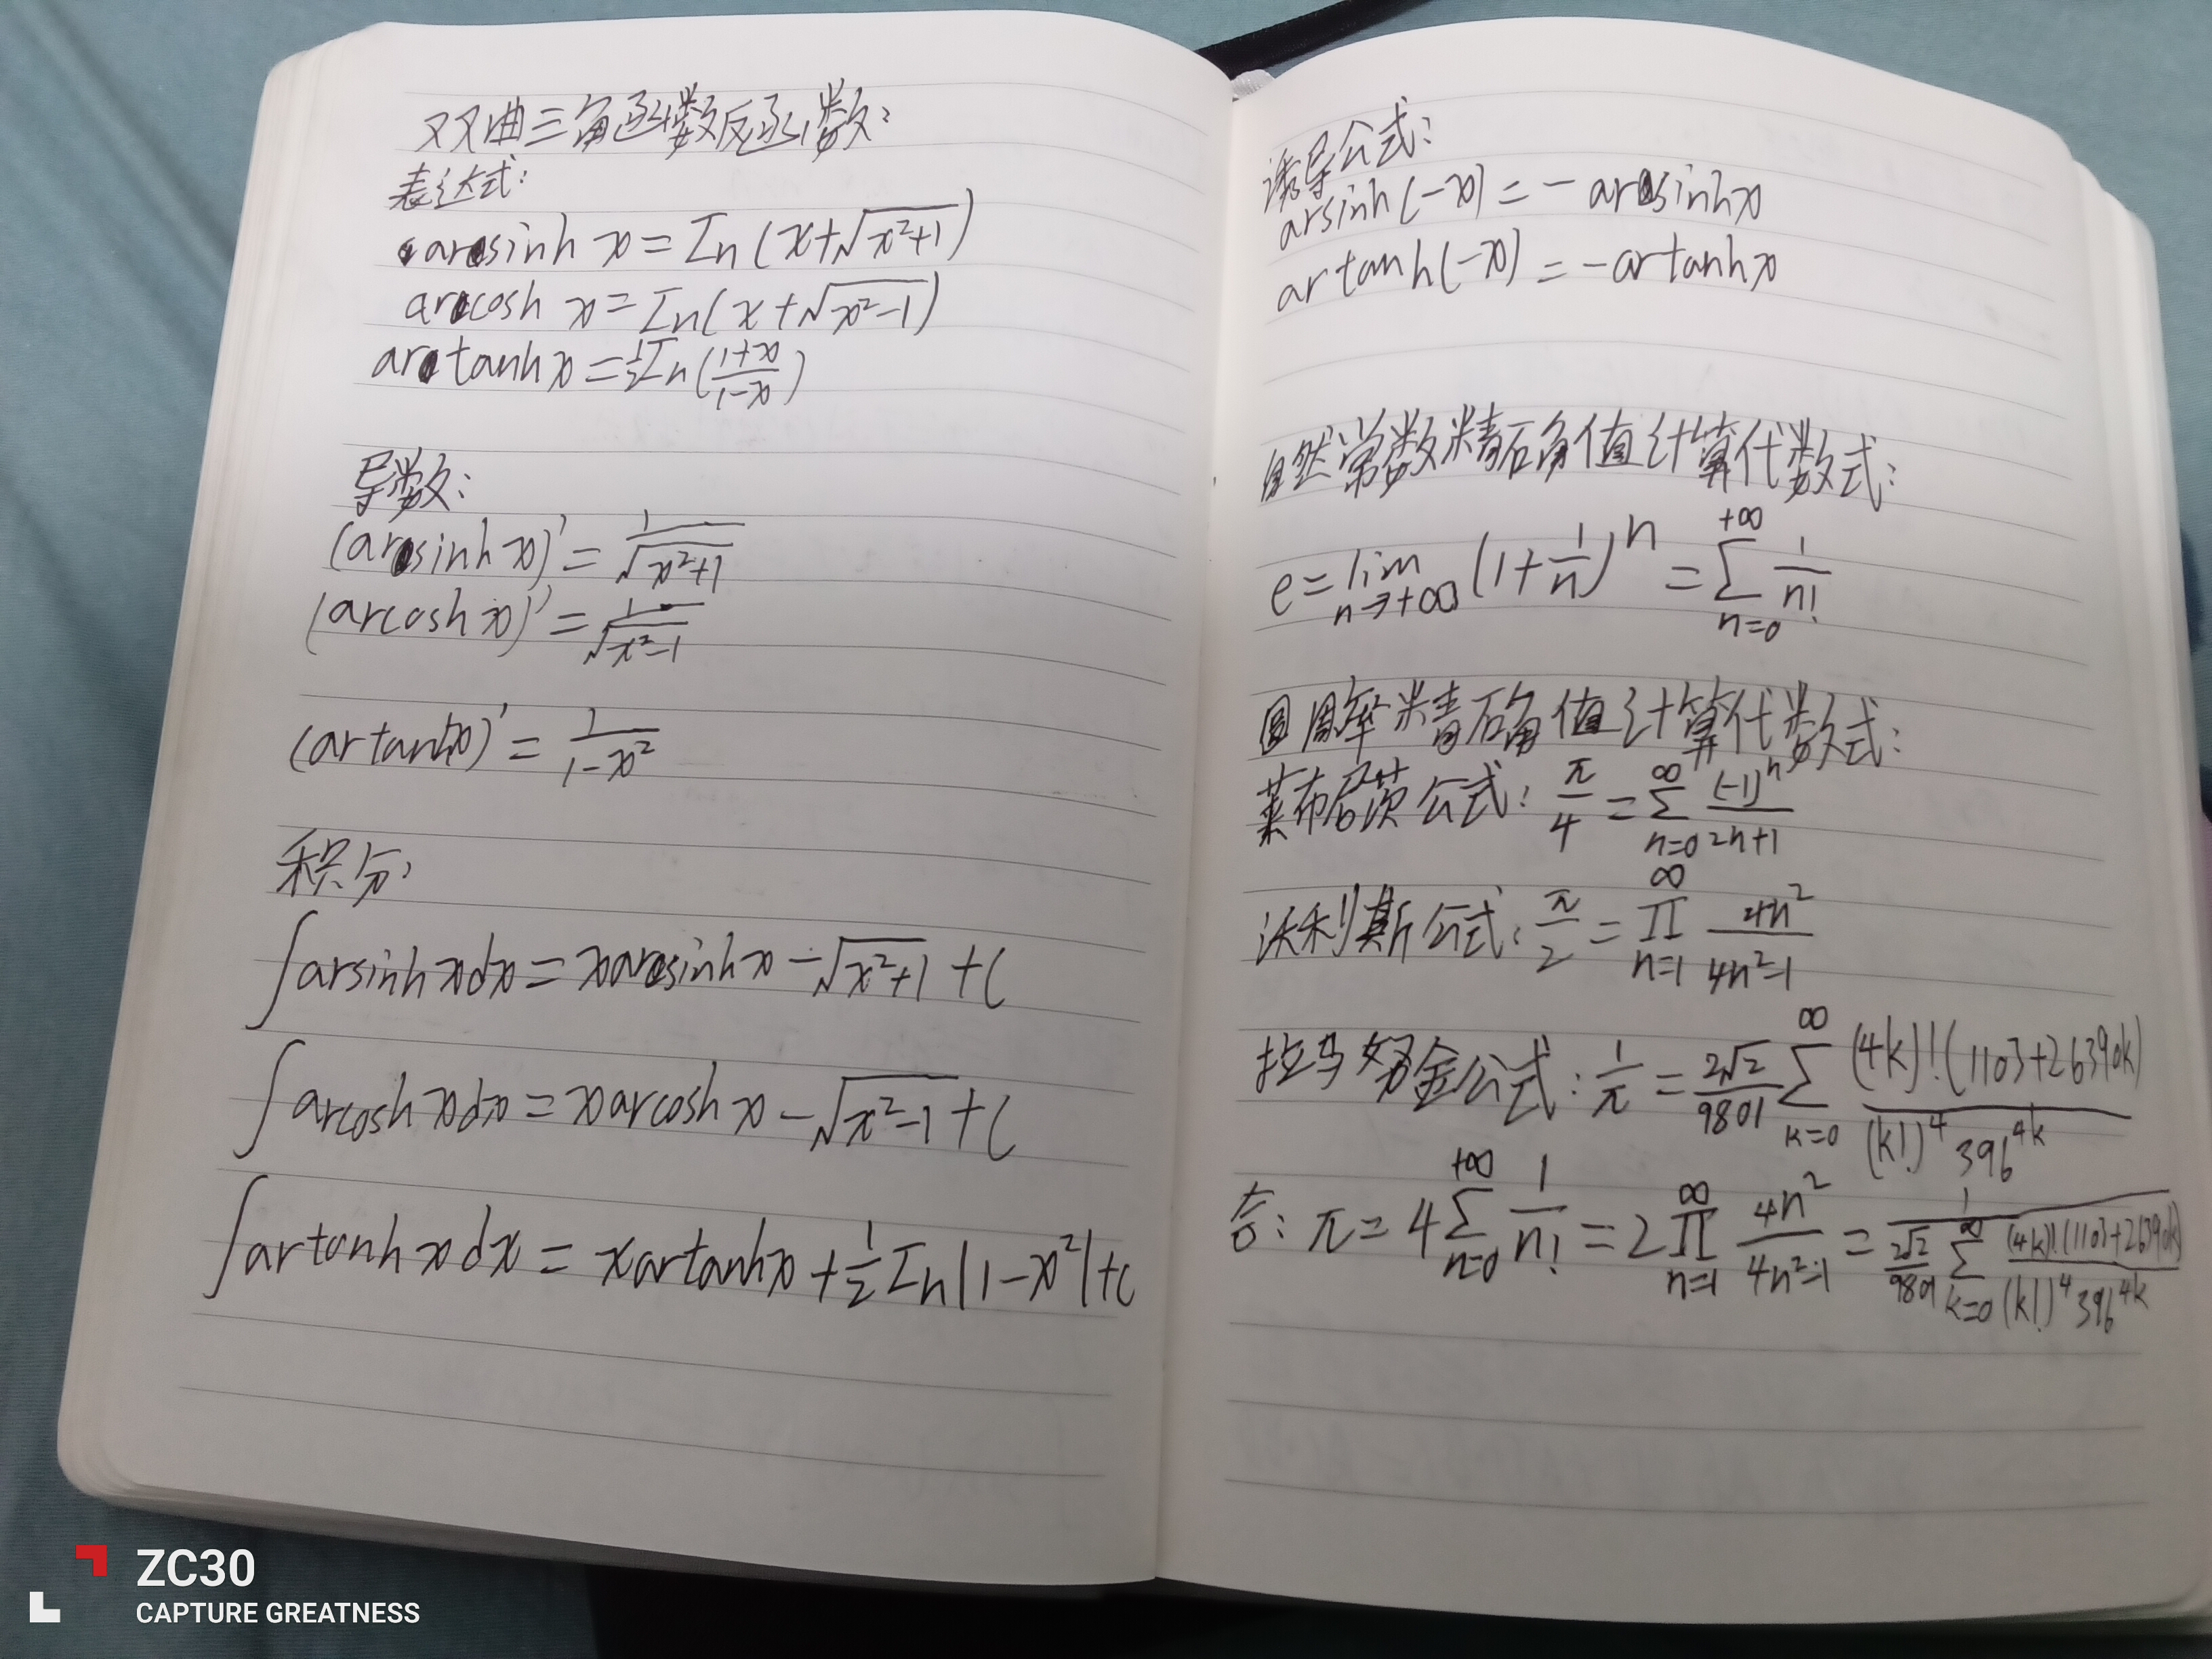 双曲三角函数反函数:
表达式:
arsinh x = In(x+√(x²+1))
arcosh x = In(x+√(x²-1))
artanh x = ½In((1+x)/(1-x))
导数:
(arsinh x)' = 1/√(x²+1)
(arcosh x)' = 1/√(x²-1)
(artanh x)' = 1/(1-x²)
积分:
∫arsinh x dx = x arsinh x - √(x²+1) + C
∫arcosh x dx = x arcosh x - √(x²-1) + C
∫artanh x dx = x artanh x + ½In|1-x²| + C
诱导公式:
arsinh(-x) = -arsinh x
artanh(-x) = -artanh x
自然常数精确值计算代数式:
e = lim_{n→+∞} (1+1/n)^n = ∑_{n=0}^{+∞} 1/n!
圆周率精确值计算代数式:
莱布尼茨公式: π/4 = ∑_{n=0}^{∞} (-1)^n/(2n+1)
沃利斯公式: π/2 = ∏_{n=1}^{∞} 4n²/(4n²-1)
拉马努金公式: 1/π = 2√2/9801 ∑_{k=0}^{∞} (4k)!(1103+26390k)/((k!)^4 396^{4k})
合: π = 4∑_{n=0}^{+∞} 1/n! = 2∏_{n=1}^{∞} 4n²/(4n²-1) = 1/(2√2/9801 ∑_{k=0}^{∞} (4k)!(1103+26390k)/((k!)^4 396^{4k}))
ZC30
CAPTURE GREATNESS